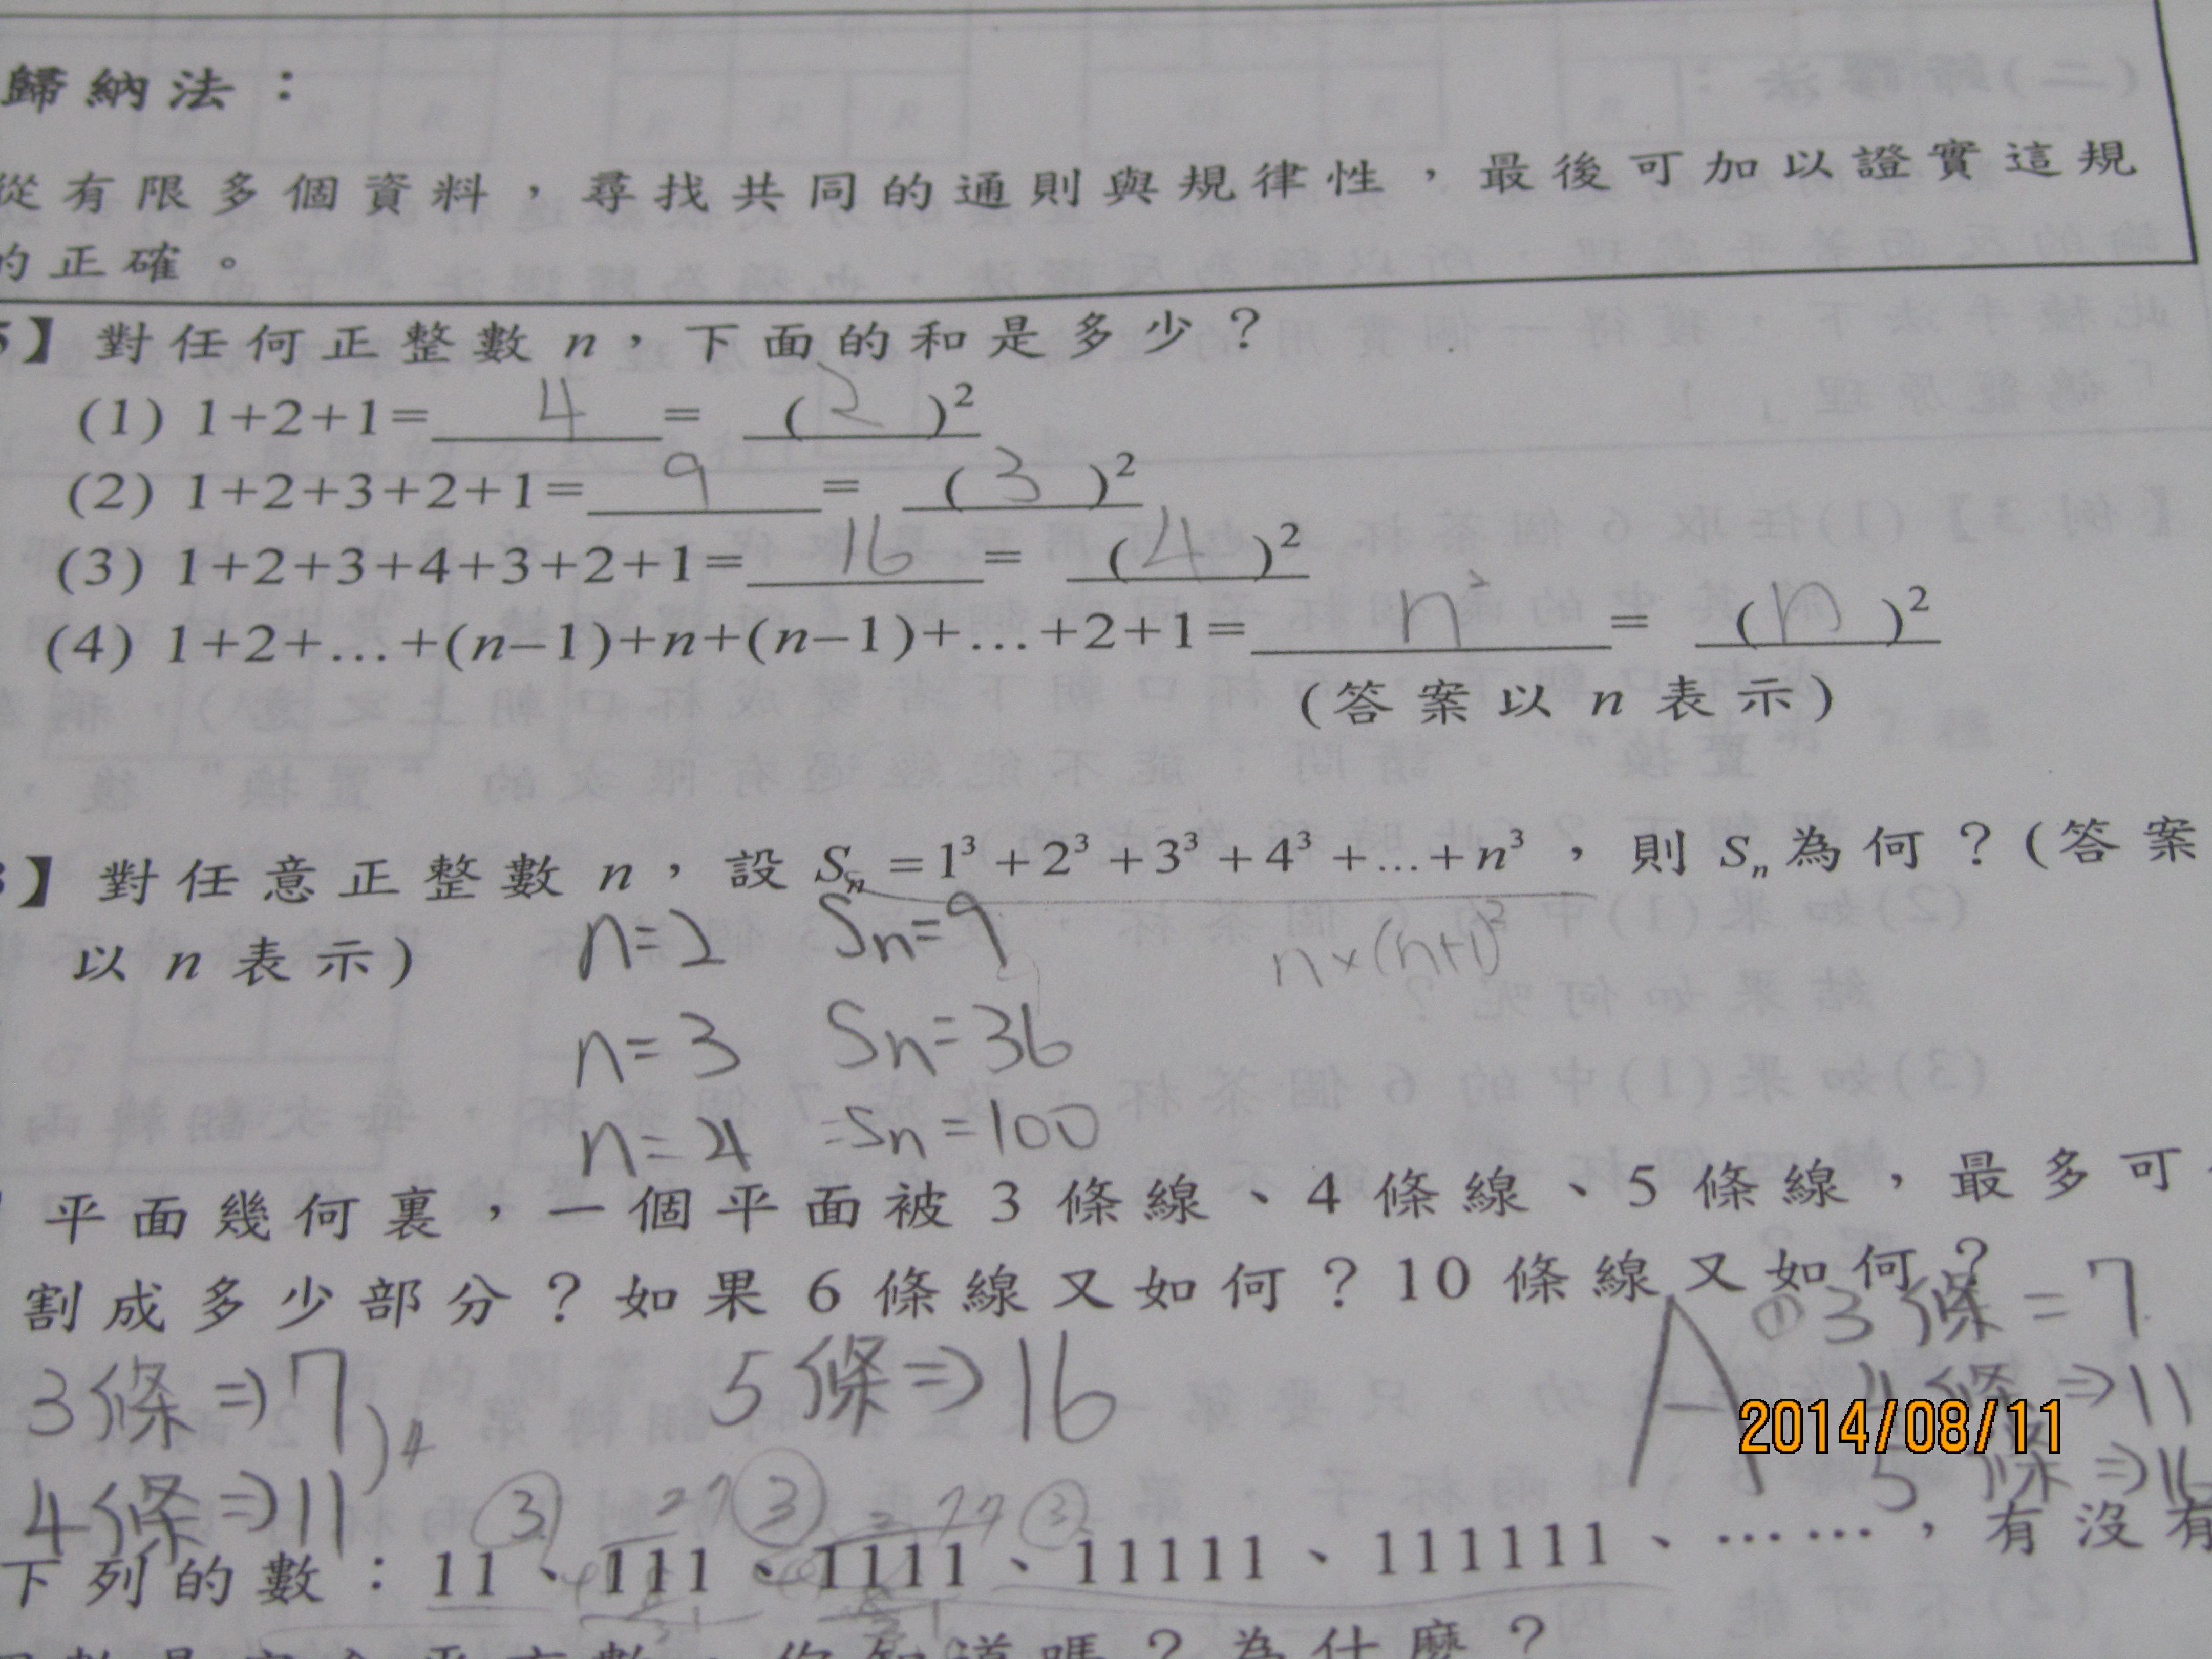 歸納法：
從有限多個資料，尋找共同的通則與規律性，最後可加以證實這規
的正確。
5】對任何正整數 n，下面的和是多少？
(1) 1+2+1= 4 = ( 2 )²
(2) 1+2+3+2+1= 9 = ( 3 )²
(3) 1+2+3+4+3+2+1= 16 = ( 4 )²
(4) 1+2+…+(n−1)+n+(n−1)+…+2+1= n² = ( n )²
(答案以 n 表示)
】對任意正整數 n，設 Sₙ = 1³ + 2³ + 3³ + 4³ + … + n³，則 Sₙ 為何？(答案
以 n 表示)
n=2 Sn=9
n×(n+1)²
n=3 Sn=36
n=4 =Sn=100
平面幾何裏，一個平面被 3 條線、4 條線、5 條線，最多可
割成多少部分？如果 6 條線又如何？10 條線又如何？
A ①3條=7
3條⇒7
5條⇒16
4條⇒11
2014/08/11
)4
5條⇒16
4條⇒11
③ 27 ③ 77 ③
下列的數：11、111、1111、11111、111111、……，有沒有
你知道嗎？為什麼？